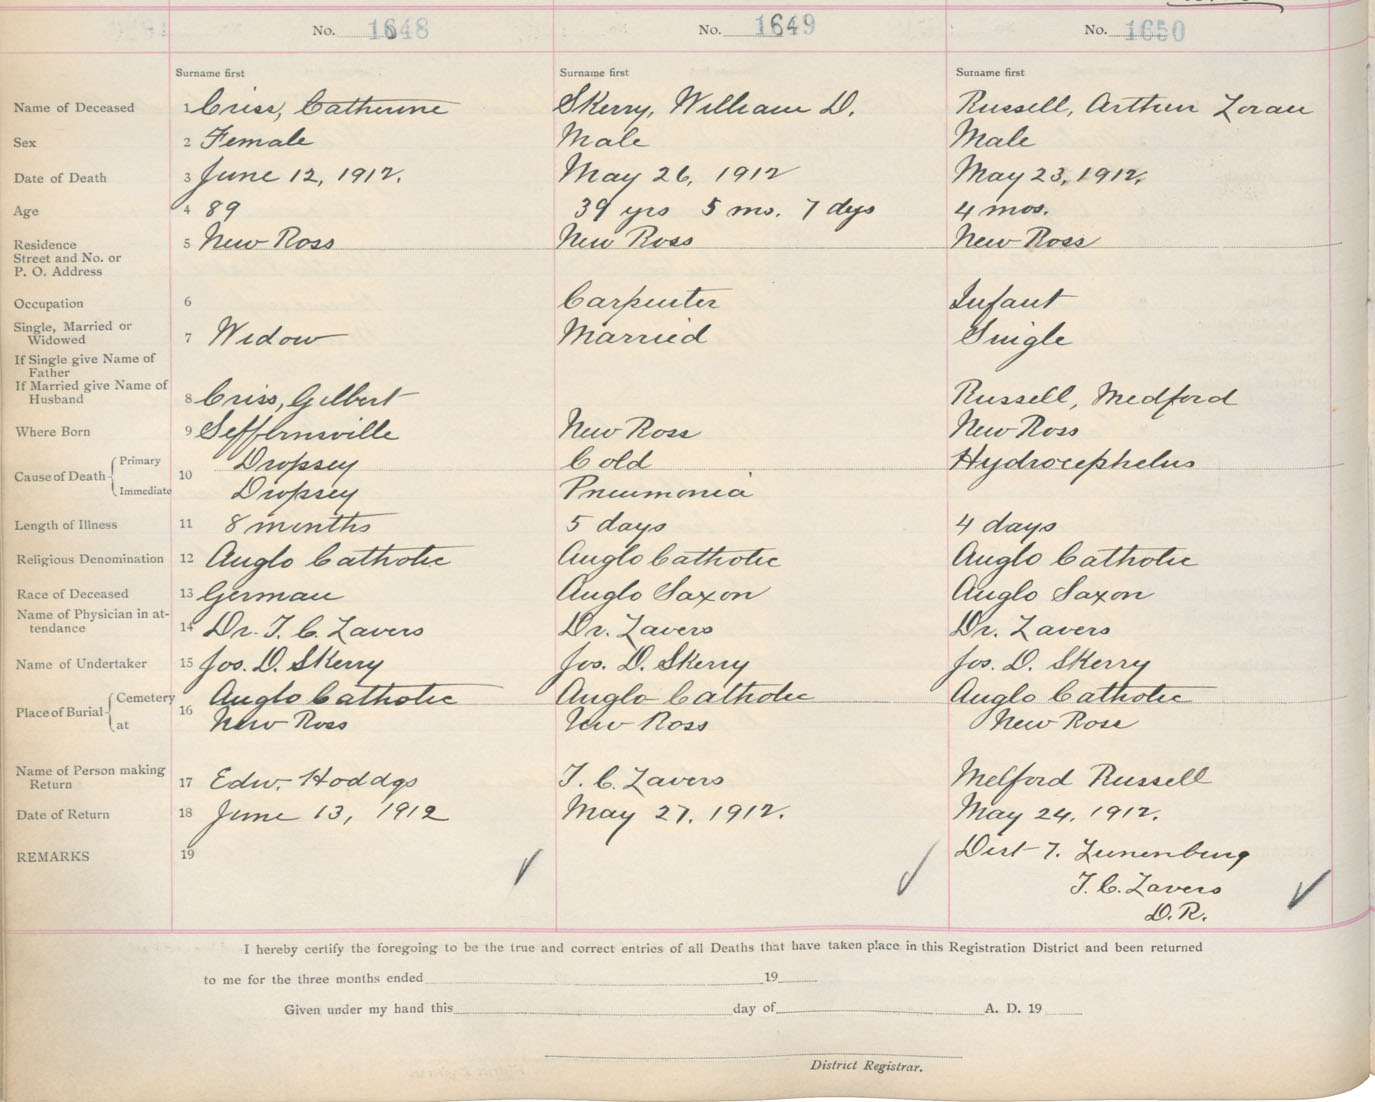 No. 1648 No. 1649 No. 1650
Surname first Surname first Surname first
Name of Deceased 1 Criss, Catherine Skerry, William D. Russell, Arthur Loran
Sex 2 Female Male Male
Date of Death 3 June 12, 1912. May 26, 1912 May 23, 1912,
Age 4 89 39 yrs 5 mo. 7 dys 4 mos.
Residence 5 New Ross New Ross New Ross
Street and No. or
P. O. Address
Occupation 6 Carpenter Infant
Single, Married or
Widowed 7 Widow Married Single
If Single give Name of
Father
If Married give Name of
Husband 8 Criss, Gilbert Russell, Medford
Where Born 9 Seffernsville New Ross New Ross
Cause of Death Primary 10 Dropsey Cold Hydrocephelus
Immediate Dropsey Pneumonia
Length of Illness 11 8 months 5 days 4 days
Religious Denomination 12 Anglo Catholic Anglo Catholic Anglo Catholic
Race of Deceased 13 German Anglo Saxon Anglo Saxon
Name of Physician in at-
tendance 14 Dr. T. C. Lavers Dr. Lavers Dr. Lavers
Name of Undertaker 15 Jos. D. Skerry Jos. D. Skerry Jos. D. Skerry
Place of Burial Cemetery 16 Anglo Catholic Anglo-Catholic Anglo Catholic
at New Ross New Ross New Ross
Name of Person making
Return 17 Edw. Hoddgs T. C. Lavers Melford Russell
Date of Return 18 June 13, 1912 May 27, 1912. May 24, 1912.
REMARKS 19 Dist 7. Lunenburg
T. C. Lavers
D. R.
I hereby certify the foregoing to be the true and correct entries of all Deaths that have taken place in this Registration District and been returned
to me for the three months ended 19
Given under my hand this day of A. D. 19
District Registrar.